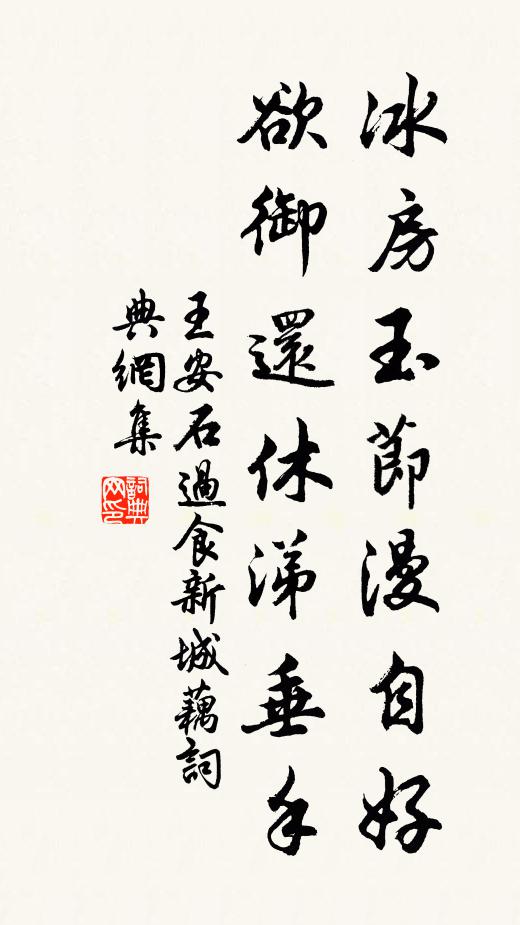 冰房玉節漫自好
欲御還休涕垂手
王安石過食新城藕詞
典網集
詞典网印